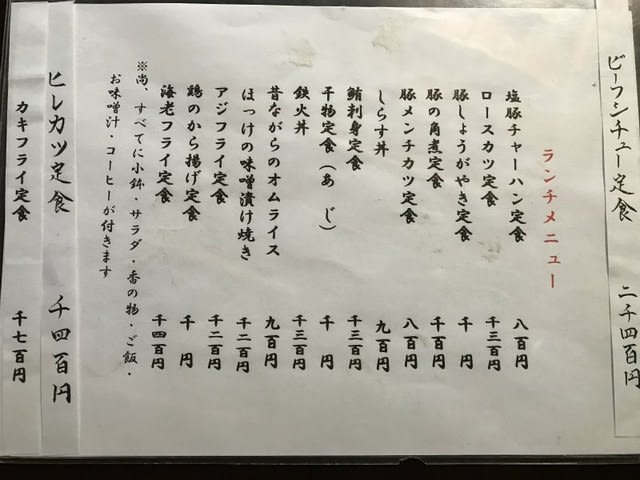 ビーフシチュー定食 二千四百円
ランチメニュー
塩豚チャーハン定食 八百円
ロースカツ定食 千三百円
豚しょうがやき定食 千円
豚の角煮定食 千百円
豚メンチカツ定食 八百円
しらす丼 九百円
鮪刺身定食 千三百円
干物定食（あじ） 千円
鉄火丼 千三百円
昔ながらのオムライス 九百円
ほっけの味噌漬け焼き 千二百円
アジフライ定食 千二百円
鶏のから揚げ定食 千円
海老フライ定食 千四百円
※尚、すべてに小鉢・サラダ・香の物・ご飯・
お味噌汁・コーヒーが付きます
ヒレカツ定食 千四百円
カキフライ定食 千七百円